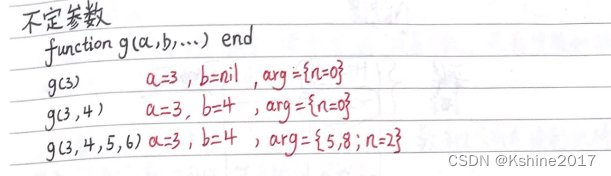 不定参数
function g(a,b,...) end
g(3) a=3, b=nil, arg={n=0}
g(3,4) a=3, b=4, arg={n=0}
g(3,4,5,6) a=3, b=4, arg={5,8;n=2}
CSDN @Kshine2017